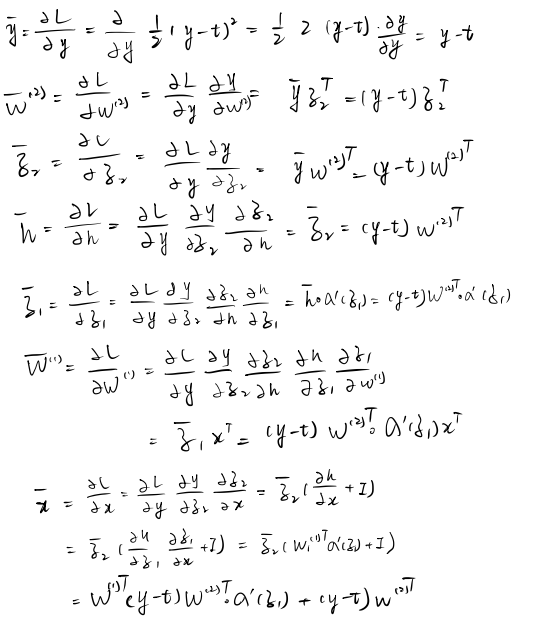 ȳ = ∂L/∂y = ∂/∂y 1/2 (y-t)² = 1/2 2 (y-t) · ∂y/∂y = y-t
W̄⁽²⁾ = ∂L/∂W⁽²⁾ = ∂L/∂y ∂y/∂W⁽²⁾ = ȳ z₂ᵀ = (y-t) z₂ᵀ
z̄₂ = ∂L/∂z₂ = ∂L/∂y ∂y/∂z₂ = ȳ W⁽²⁾ᵀ = (y-t) W⁽²⁾ᵀ
h̄ = ∂L/∂h = ∂L/∂y ∂y/∂z₂ ∂z₂/∂h = z̄₂ = (y-t) W⁽²⁾ᵀ
z̄₁ = ∂L/∂z₁ = ∂L/∂y ∂y/∂z₂ ∂z₂/∂h ∂h/∂z₁ = h̄∘a'(z₁) = (y-t)W⁽²⁾ᵀ∘a'(z₁)
W̄⁽¹⁾ = ∂L/∂W⁽¹⁾ = ∂L/∂y ∂y/∂z₂ ∂z₂/∂h ∂h/∂z₁ ∂z₁/∂W⁽¹⁾
= z̄₁ xᵀ = (y-t) W⁽²⁾ᵀ∘a'(z₁)xᵀ
x̄ = ∂L/∂x = ∂L/∂y ∂y/∂z₂ ∂z₂/∂x = z̄₂ (∂h/∂x + I)
= z̄₂ (∂h/∂z₁ ∂z₁/∂x + I) = z̄₂ (W₁⁽¹⁾ᵀ a'(z₁) + I)
= W⁽¹⁾ᵀ(y-t)W⁽²⁾ᵀ∘a'(z₁) + (y-t)W⁽²⁾ᵀ